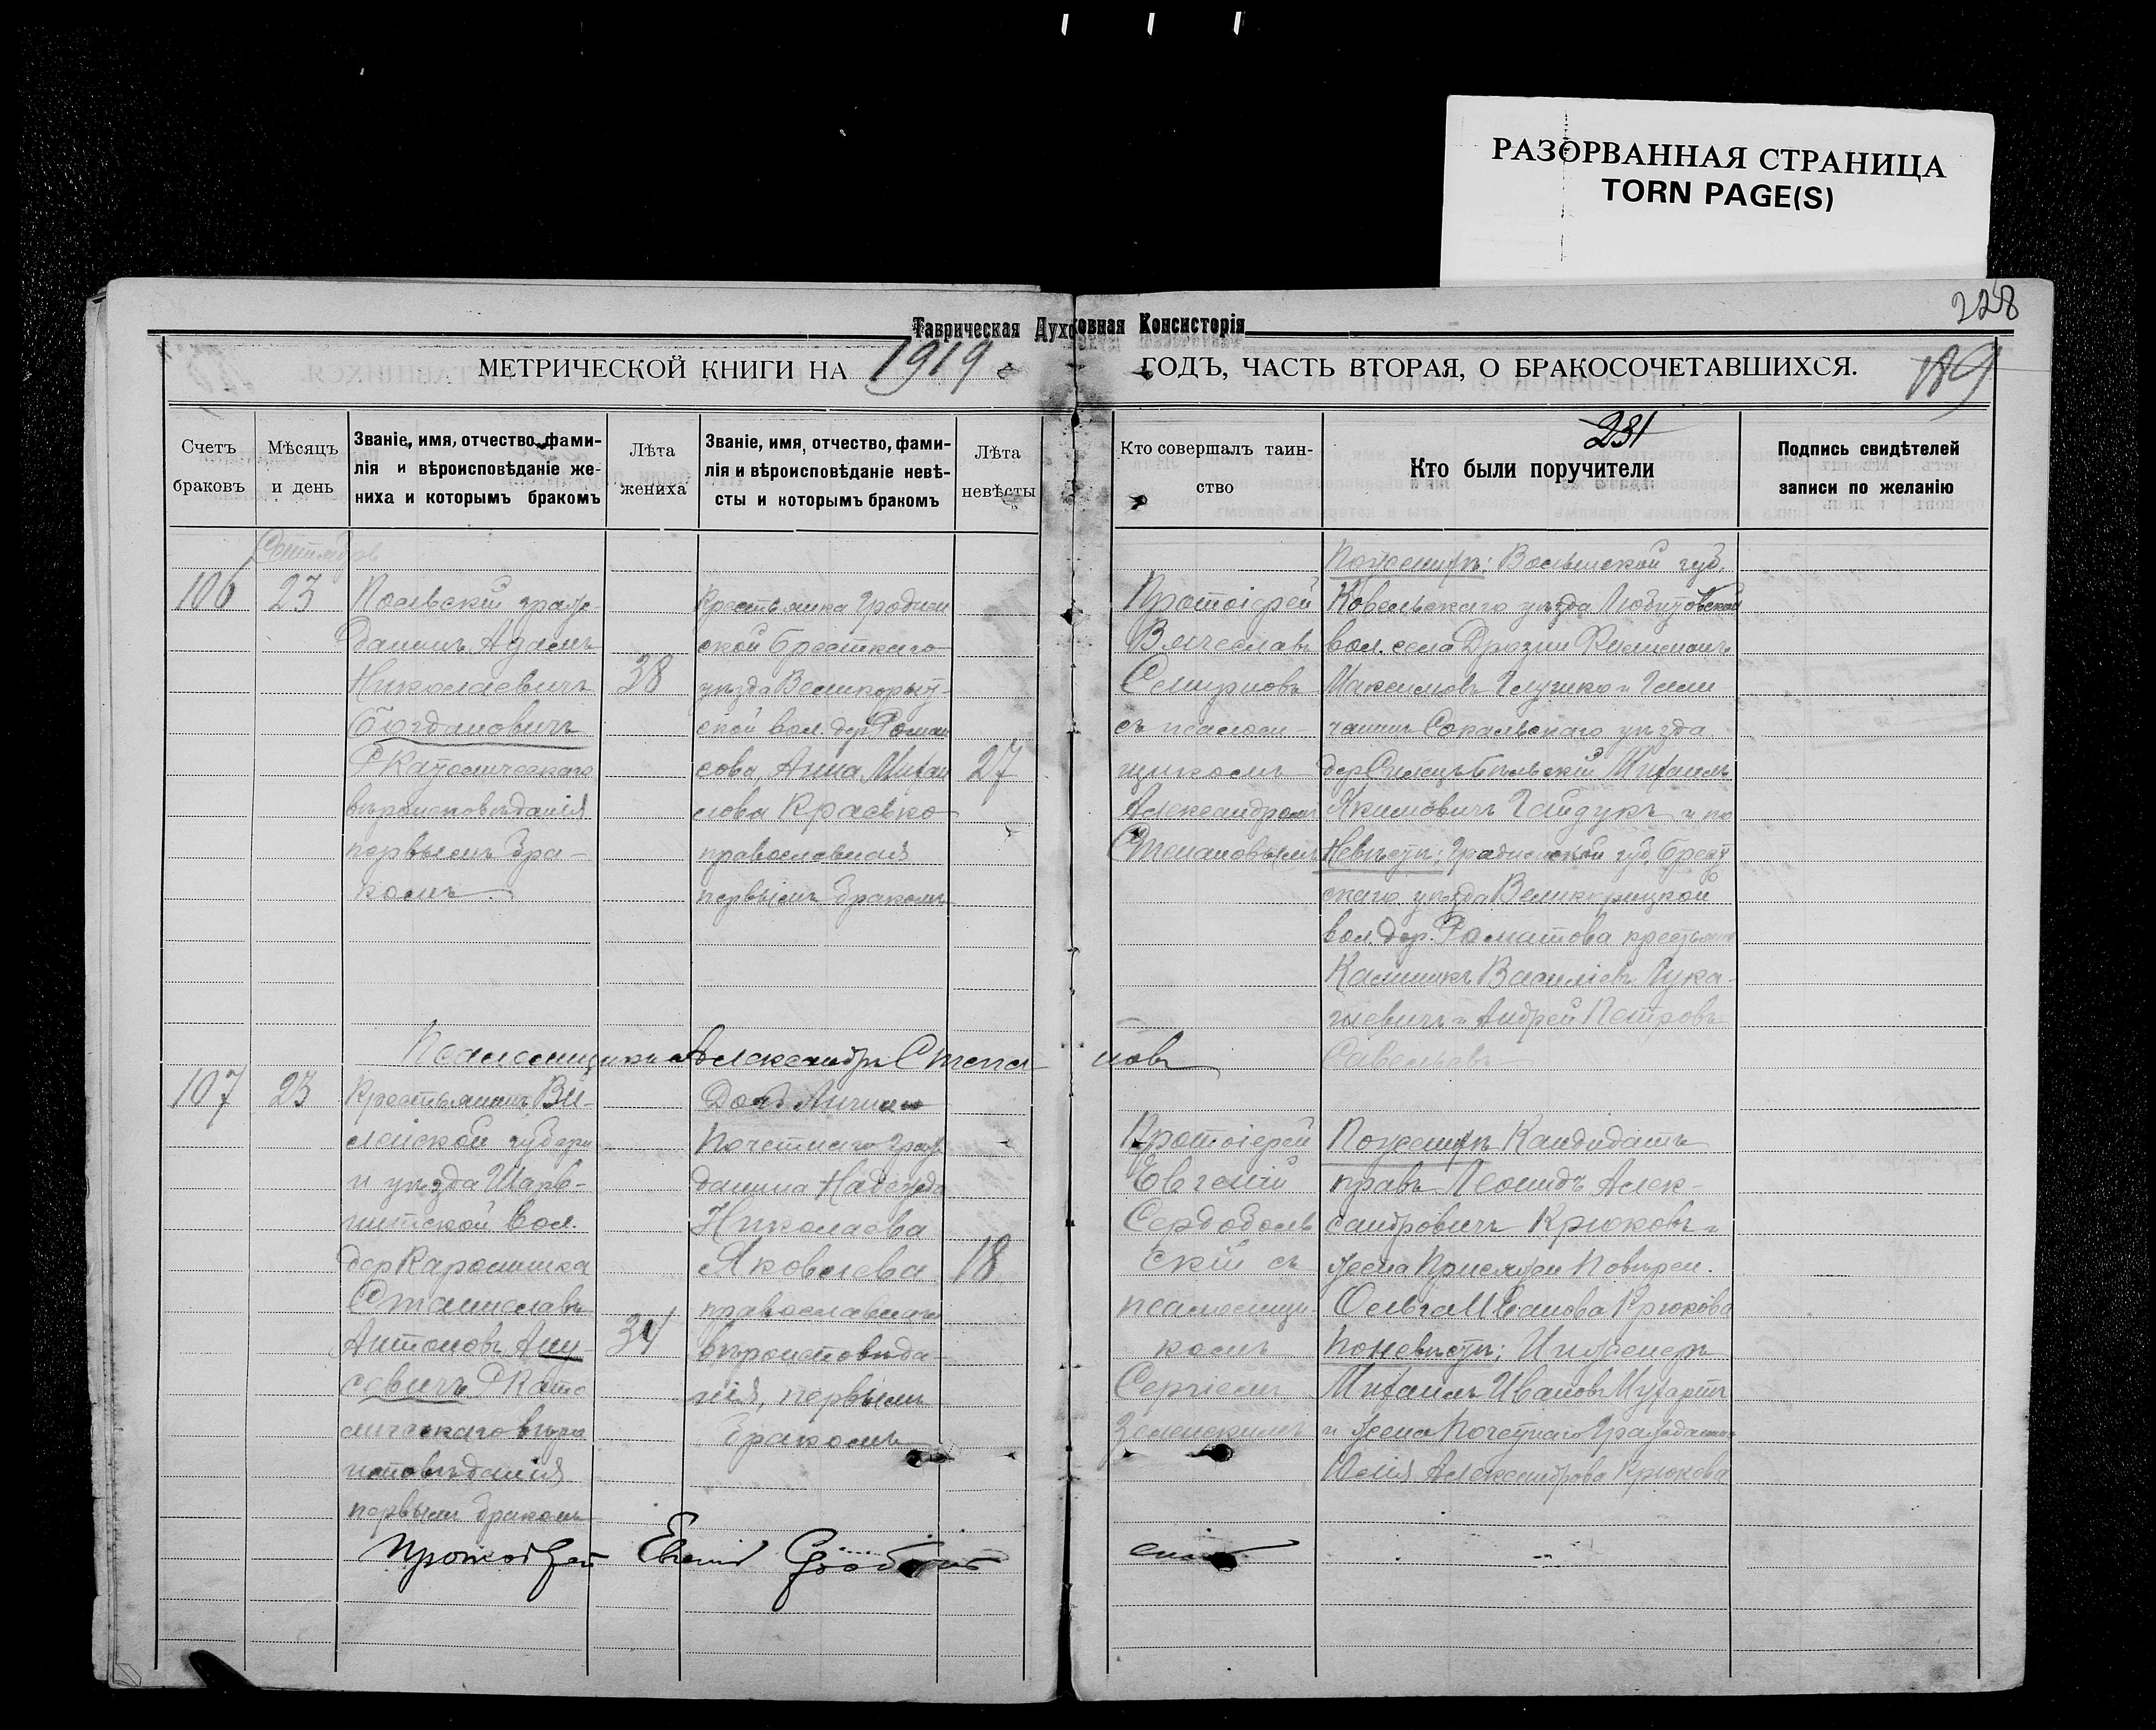 РАЗОРВАННАЯ СТРАНИЦА
TORN PAGE(S)
228
Таврическая Духовная Консисторія
МЕТРИЧЕСКОЙ КНИГИ НА 1919 ГОДЪ, ЧАСТЬ ВТОРАЯ, О БРАКОСОЧЕТАВШИХСЯ.
189
231
Счетъ
браковъ
Мѣсяцъ
и день
Званіе, имя, отчество, фами-
лія и вѣроисповѣданіе же-
ниха и которымъ бракомъ
Лѣта
жениха
Званіе, имя, отчество, фами-
лія и вѣроисповѣданіе невѣ-
сты и которымъ бракомъ
Лѣта
невѣсты
Кто совершалъ таин-
ство
Кто были поручители
Подпись свидѣтелей
записи по желанію
Сентябрь
106
23
Польскій граж-
данинъ Адамъ
Николаевичъ
Богдановичъ
Р Католическаго
вѣроисповѣданія
первымъ бра-
комъ.
38
Крестьянка Гроднен
ской Брестскаго
уѣзда Великорыт-
ской вол. дер. Роман
сова, Анна Михаи
лова Красько
православная
первымъ бракомъ
27
Протоіерей
Вячеславъ
Смирновъ
съ псалом-
щикомъ
Александромъ
Степановымъ
По женихѣ: Волынской губ.
Ковельскаго уѣзда
вол. села
Максимовъ
Сокальскаго уѣзда
дер. Михаилъ
Якимовичъ Гайдукъ и по
Невѣстѣ: Гродненской губ. Брест
скаго уѣзда Великорицкой
вол. дер. Романова крестьяне
Василіевъ Лука-
шевичъ и Андрей Петровъ
Савельевъ
Псаломщикъ Александръ Степановъ
107
23
Крестьянинъ Ви-
ленской губерн
и уѣзда
вол.
дер Каролинка
Станиславъ
Антоновъ
Р Като
лическаго вѣро
исповѣданія
первымъ бракомъ
34
Дочь Лично
Почетнаго граж
данина Надежда
Николаева
Яковлева
православнаго
вѣроисповѣда-
нія, первымъ
бракомъ
18
Протоіерей
Евгеній
Сердоболь
скій съ
псаломщи-
комъ
Сергіемъ
Зеленскимъ
По женихѣ Кандидатъ
правъ Леонидъ Алек-
сандровичъ Крюковъ и
жена Присяжн Повѣрен.
Ольга Иванова Крюкова
По невѣстѣ: Инженеръ
Михаилъ Ивановъ
и жена Почетнаго Гражданина
Юлія Александрова Крюкова
Протоіерей Евгеній Сердобольскій